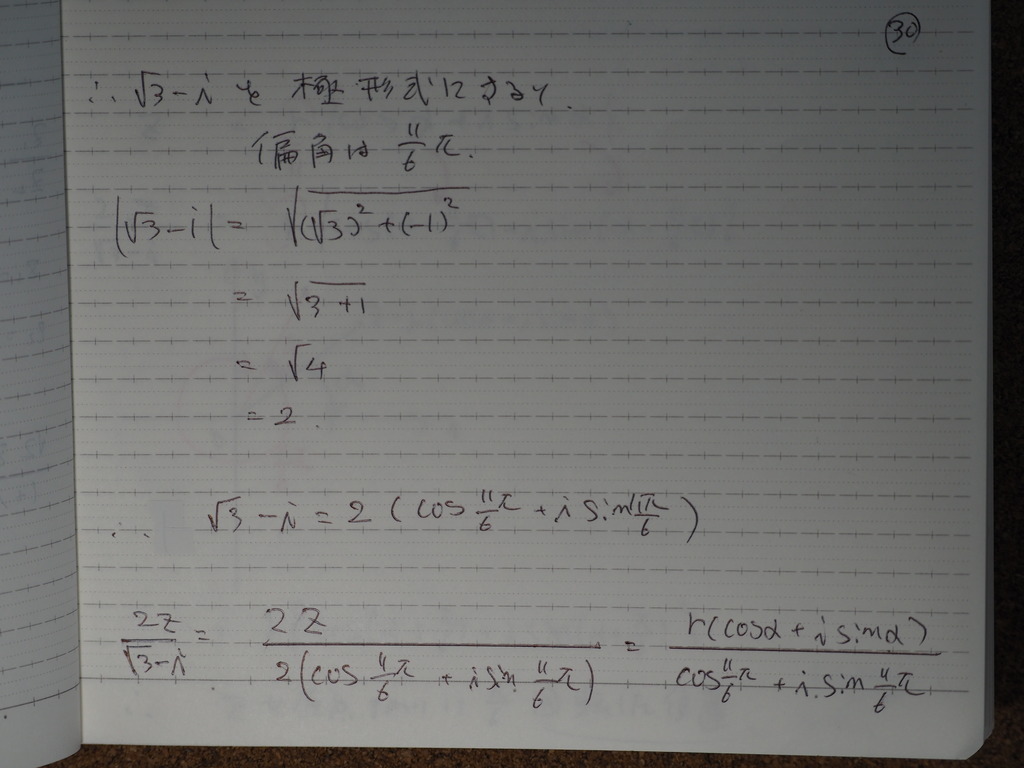 ㉚
∴ √3-i を 極形式にすると
偏角は 11/6 π.
|√3-i| = √((√3)²+(-1)²)
= √(3+1)
= √4
= 2.
∴ √3-i = 2 (cos 11/6 π + i sin 11π/6)
2z/(√3-i) = 2z/(2(cos 11/6 π + i sin 11/6 π)) = r(cosα + i sinα)/(cos 11/6 π + i sin 11/6 π)